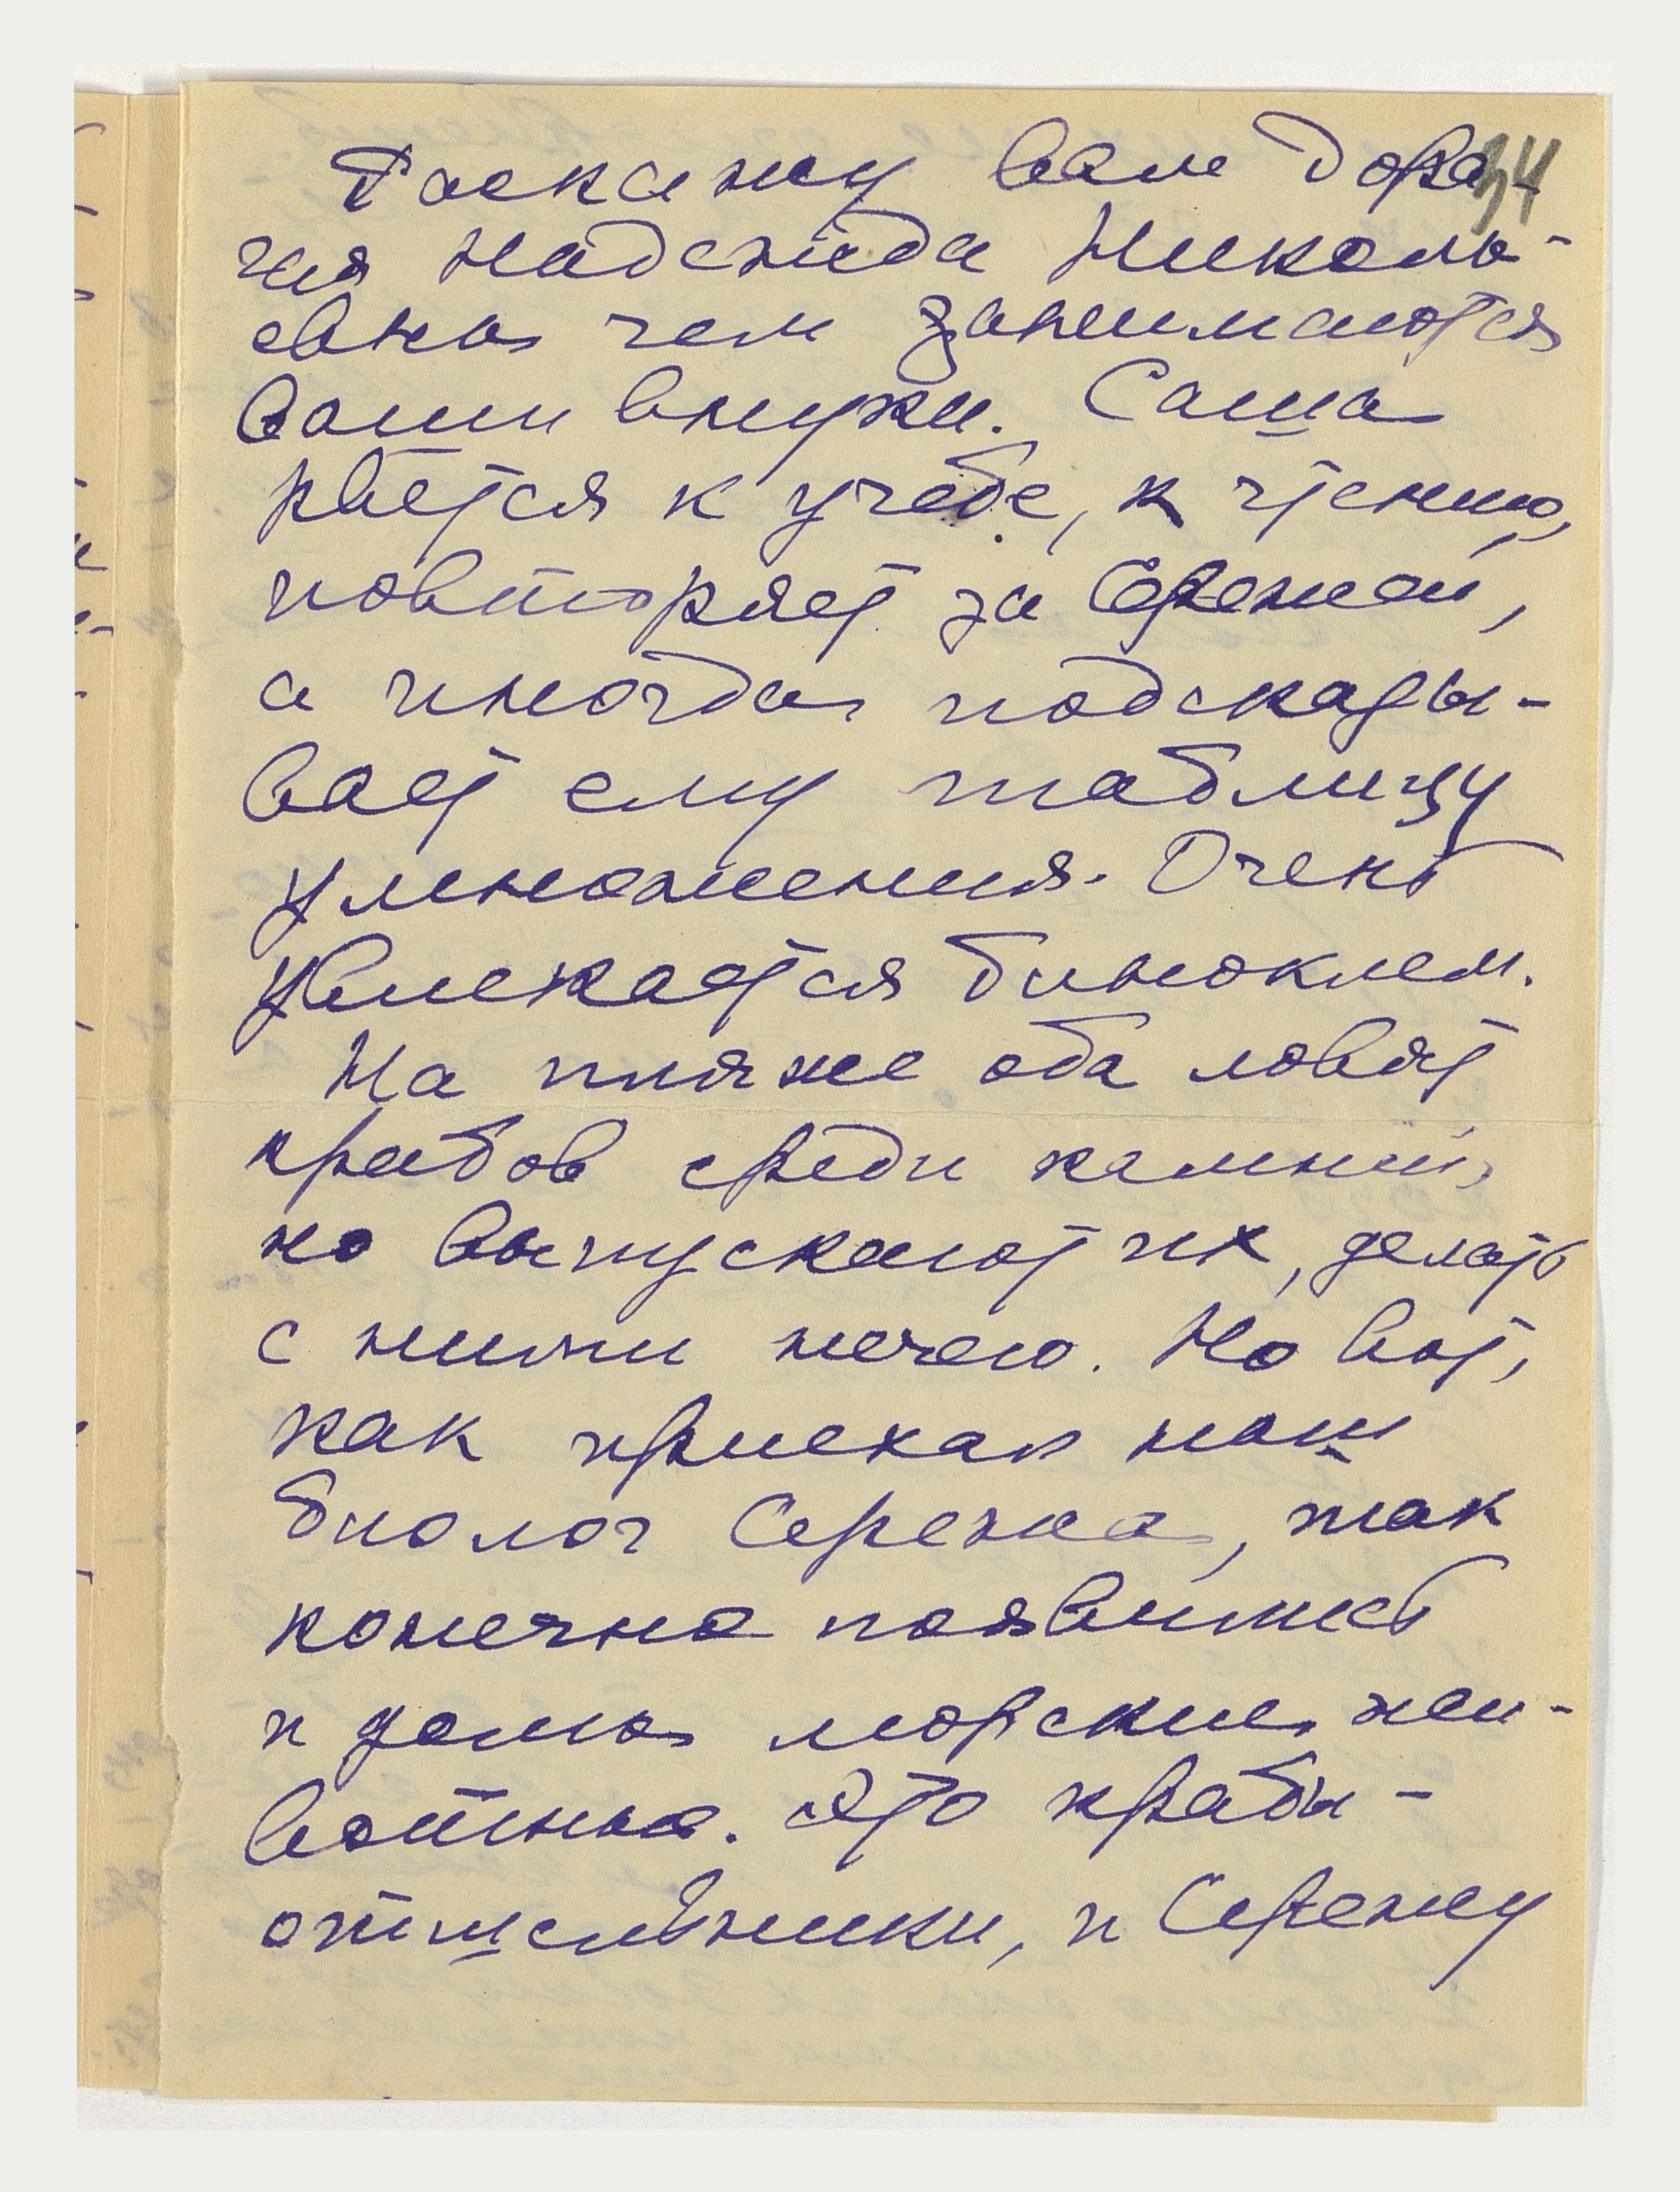 Раскажу Вам дора- 34
гая Надежда Никола-
евна чем занимаются
Ваши внуки. Саша
рвется к учебе, к чтению,
повторяет за Сережей,
а иногда подсказы-
вает ему таблицу
умножения. Очень
увлекается биноклем.
На пляже оба ловят
крабов среди камней,
но выпускают их, делать
с ними нечего. Но вот,
как приехал наш
биолог Сережа, так
конечно появились
и дома морские жи-
вотные. Это крабы-
отшельники, и Сережу